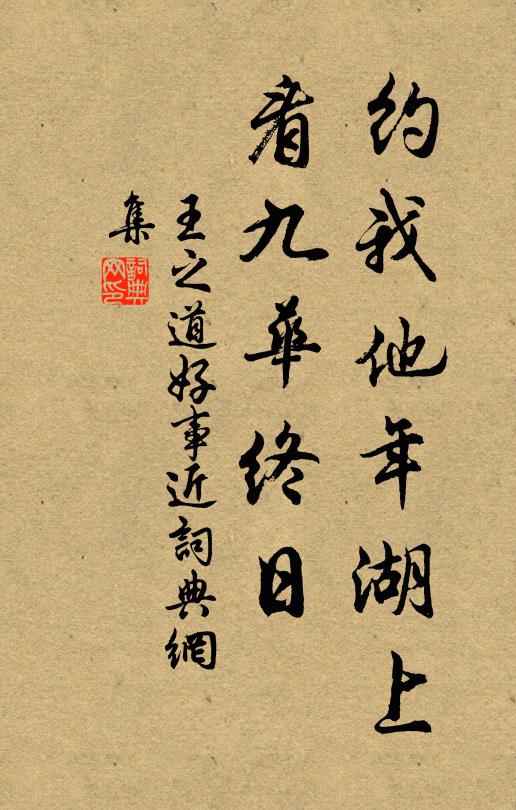 约我他年湖上
看九華终日
王之道好事近詞典網
集
詞典
网印